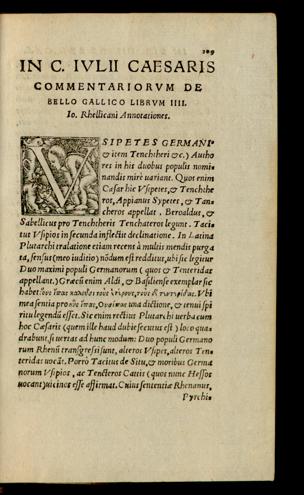 109
IN C. IVLII CAESARIS
COMMENTARIORVM DE
BELLO GALLICO LIBRVM IIII.
Io. Rhellicani Annotationes.
VSIPETES GERMANI
& item Tenchtheri &c.) Autho
res in his duobus populis nomi
nandis mirè uariant. Quos enim
Cæsar hic Vsipetes, & Tenchthe
ros, Appianus Sypetes, & Tan-
cheros appellat. Beroaldus, &
Sabellicus pro Tenchtheris Tenchateros legunt. Taci
tus Vsipios in secunda inflectit declinatione. In Latina
Plutarchi tralatione etiam recens à multis mendis purga
ta, sensus (meo iuditio) nōdum est redditus, ubi sic legitur
Duo maximi populi Germanorum (quos & Tenteridas
appellant.) Græcū enim Aldi, & Basiliense exemplar sic
habet: καὶ τοὺς Vbi
mea sentia pro una dictione, & tenui spi
ritu legendū esset. Sic enim rectius Plutarchi uerba cum
hoc Cæsaris (quem ille haud dubiè secutus est) loco qua-
drabunt, si uertas ad hunc modum: Duo populi Germano
rum Rhenū transgressi sunt, alteros Vsipet, alteros Ten
teridas uocāt. Porrò Tacitus de Situ, & moribus Germa
norum Vsipios, ac Tencteros Cattis (quos nunc Hessos
uocant) uicinos esse affirmat. Cuius sententiæ Rhenanus,
Pyrchi-